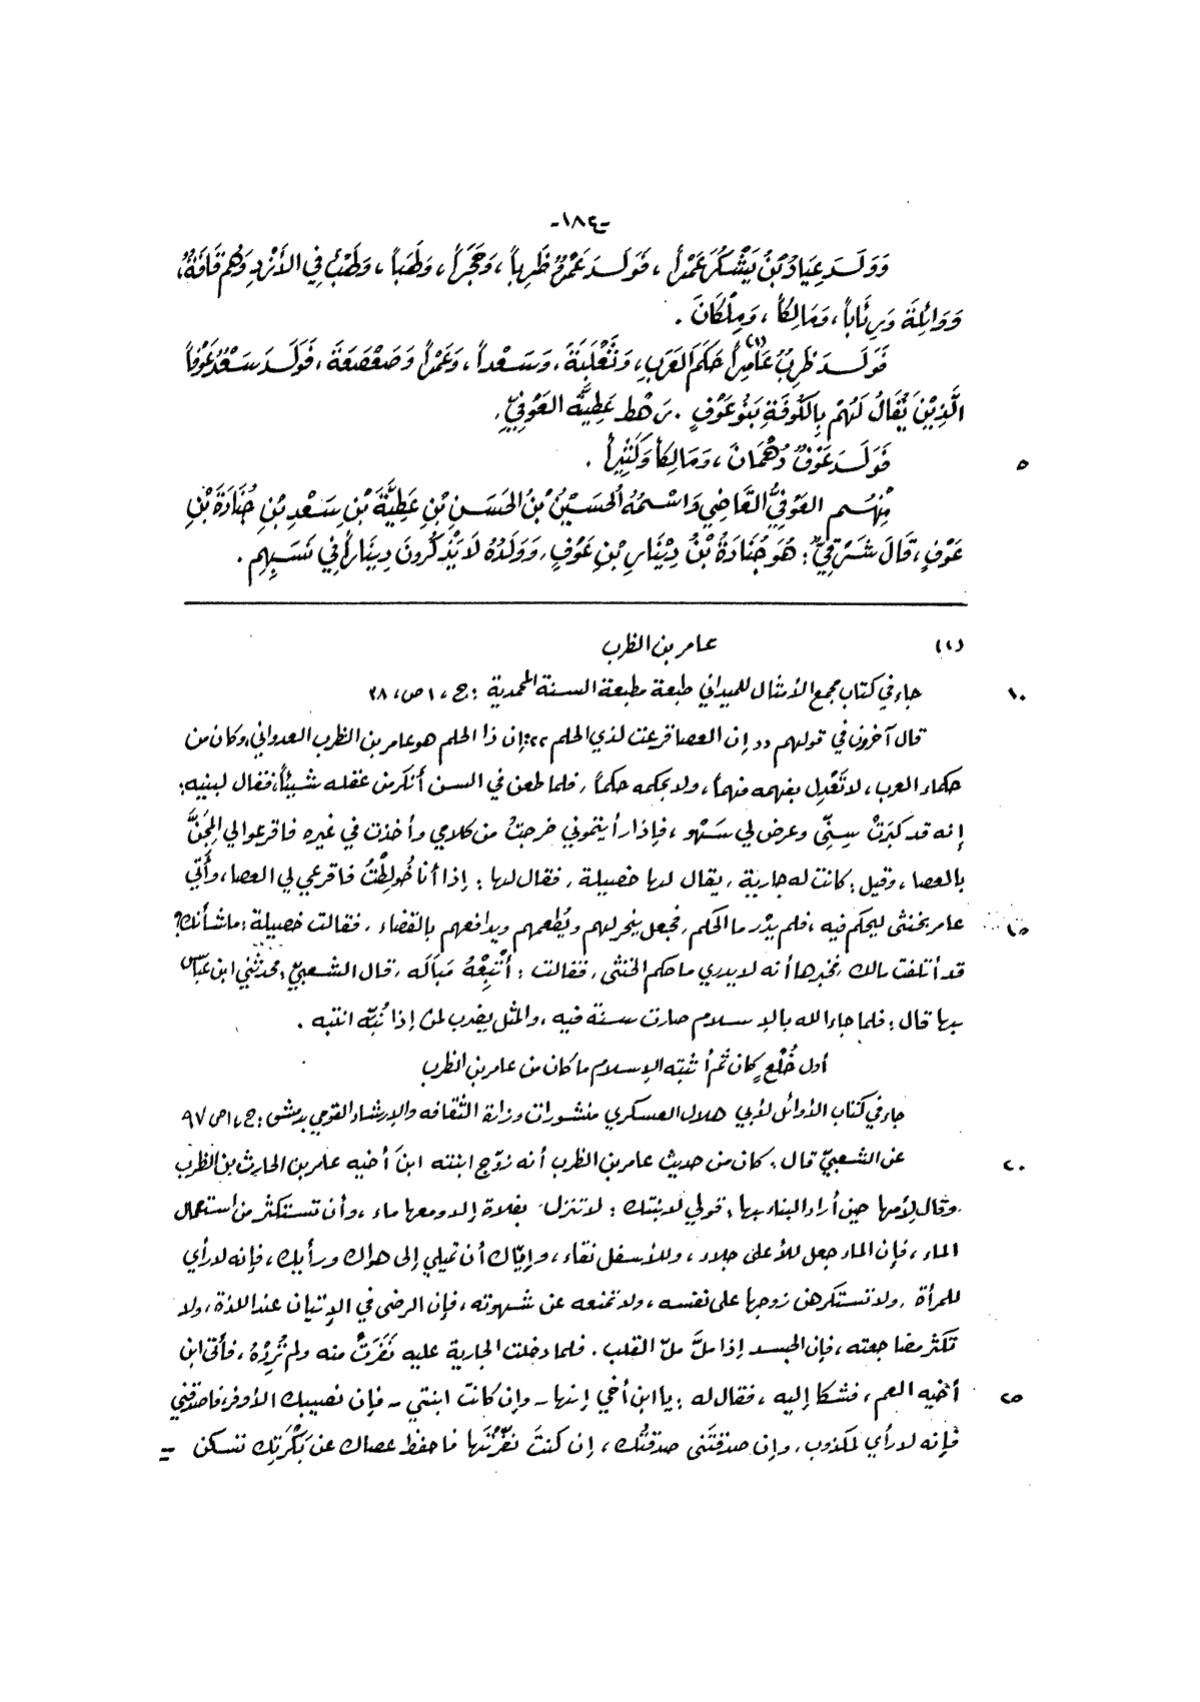 -١٨٤-
وَوَلَدَ عِيَاذُ بْنُ يَشْكُرَ عَمْراً ، فَوَلَدَ عَمْرٌو ظَرِباً ، وَحَجَراً ، وَطَهَباً ، وَطَهْبٌ فِي الأَزْدِ وَهُم قَافَةٌ ،
وَوَائِلَةَ وَرِئَاباً ، وَمَالِكاً ، وَمِلْكَانَ .
فَوَلَدَ ظَرِبٌ عَامِراً (١) حَكَمَ العَرَبِ ، وَثَعْلَبَةَ ، وَسَعْداً ، وَعَمْراً وَصَعْصَعَةَ ، فَوَلَدَ سَعْدٌ عَوْفاً
الَّذِينَ يُقَالُ لَهُمْ بِالكُوفَةِ بَنُو عَوْفٍ . رَهْط عَطِيَّة العَوْفِيِّ .
٥ فَوَلَدَ عَوْفٌ دُهْمَانَ ، وَمَالِكاً وَكَثِيراً .
مِنْهُم العَوْفِيُّ القَاضِي وَاسْمُهُ الحُسَيْنُ بْنُ الحَسَنِ بْنِ عَطِيَّةَ بْنِ سَعْدِ بْنِ جُنَادَةَ بْنِ
عَوْفٍ ، قَالَ شَرْقِيٌّ : هُوَ جُنَادَةُ بْنُ دِيْنَارِ بْنِ عَوْفٍ ، وَوَلَدُهُ لَا يَذْكُرُونَ دِينَاراً فِي نَسَبِهِم .
(١) عامر بن الظرب
١٠ جاء في كتاب مجمع الأمثال للميداني طبعة مطبعة السنة المحمدية : ج ، ١ ص ، ٣٨
قال آخرون في قولهم « إن العصا قرعت لذي الحلم » : إن ذا الحلم هو عامر بن الظرب العدواني ، وكان من
حكماء العرب ، لا تَعْدِل بفهمه فهماً ، ولا بحكمه حكماً ، فلما طعن في السن أنكر من عقله شيئاً ، فقال لبنيه :
إنه قد كبَرَتْ سِنِّي وعرض لي سَهْو ، فإذا رأيتموني خرجتُ من كلامي وأخذت في غيره فاقرعوا لي المِجَنَّ
بالعصا ، وقيل : كانت له جارية ، يقال لها خصيلة ، فقال لها : إذا أنا خُولِطْتُ فاقرعي لي العصا ، وأُتي
١٥ عامر بخنثى ليحكم فيه ، فلم يَدْر ما الحكم ، فجعل ينحر لهم ويُطعمهم ويدافعهم بالقضاء ، فقالت خصيلة : ما شأنك ؟
قد أتلفت مالك ، فخبرها أنه لا يدري ما حكم الخنثى ، فقالت : أَتْبِعْهُ مَبَالَه ، قال الشعبيّ : فحدثني ابن عبّاس
بها قال : فلما جاء الله بالإسلام صارت سنة فيه ، والمثل يضرب لمن إذا نُبِّه انتبه .
أول خُلْعٍ كان ثم أثبته الإسلام ما كان من عامر بن الظرب
جاء في كتاب الأوائل لأبي هلال العسكري منشورات وزارة الثقافه والإرشاد القومي بدمشق : ج ، ١ ص ٩٧
٢٠ عن الشعبيّ قال : كان من حديث عامر بن الظرب أنه زوّج ابنته ابنَ أخيه عامر بن الحارث بن الظرب
وقال لأمها حين أراد البناء بها : قولي لابنتك : لا تنزل بفلاة إلا ومعها ماء ، وأن تستكثر من استعمال
الماء ، فإن الماء جعل للأعلى جلاء ، وللأسفل نقاء ، وإيّاك أن تميلي إلى هواك ورأيك ، فإنه لا رأي
للمرأة ، ولا تستكرهن زوجها على نفسه ، ولا تمنعه عن شهوته ، فإن الرضى في الإتيان عند اللذة ، ولا
تكثر مضاجعته ، فإن الجسد إذا ملَّ ملّ القلب . فلما دخلت الجارية عليه نَفَرَتْ منه ولم تُرِدْهُ ، فأتى ابن
٢٥ أخيه العم ، فشكا إليه ، فقال له : يا ابن أخي إنها - وإن كانت ابنتي - فإن نصيبك الأوفر فاصدقني
فإنه لا رأي لمكذوب ، وإن صدقتَني صدقتُك ، إن كنتَ نفّرْتَها فاحفظ عصاك عن بَكْرَتِك تسكن =